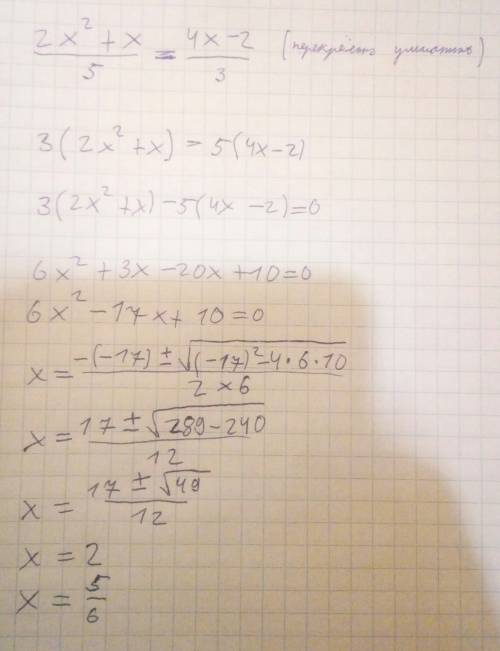 (2x² + x)/5 = (4x - 2)/3 (перекрёстно умножив)
3(2x² + x) = 5(4x - 2)
3(2x² + x) - 5(4x - 2) = 0
6x² + 3x - 20x + 10 = 0
6x² - 17x + 10 = 0
x = (-(-17) ± √((-17)² - 4 • 6 • 10))/(2 × 6)
x = (17 ± √(289 - 240))/12
x = (17 ± √49)/12
x = 2
x = 5/6